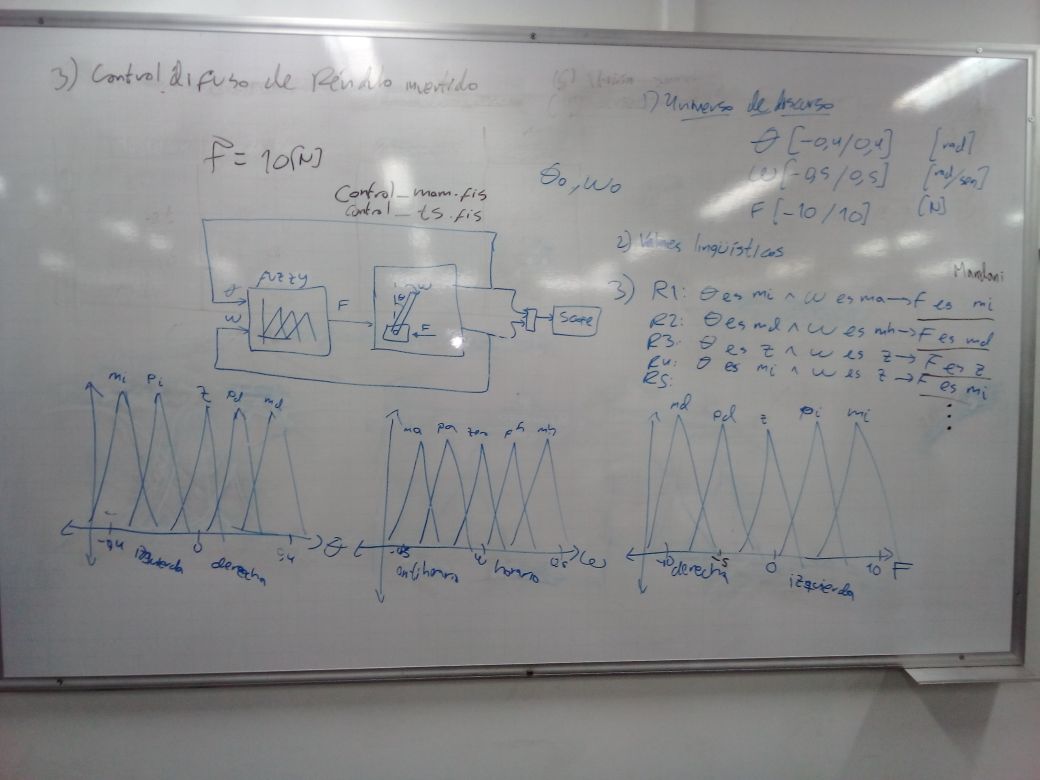 3) Control difuso de Péndulo invertido
F = 10[N]
Control_mam.fis
Control_ts.fis
θo, ωo
1) Universo de discurso
θ [-0,4/0,4] [rad]
ω [-0,5/0,5] [rad/seg]
F [-10/10] [N]
2) Valores lingüísticos
Mamdani
3) R1: θ es mi ∧ ω es ma → F es mi
R2: θ es md ∧ ω es mh → F es md
R3: θ es z ∧ ω es z → F es z
R4: θ es mi ∧ ω es z → F es mi
R5:
fuzzy
θ
ω
F
θ ω
F
Scope
mi pi z pd md
-0,4 0 0,4 θ
izquierda derecha
ma pa zero ph mh
-0,5 0,5 ω
antihorario horario
md pd z pi mi
-10 -5 0 10 F
derecha izquierda